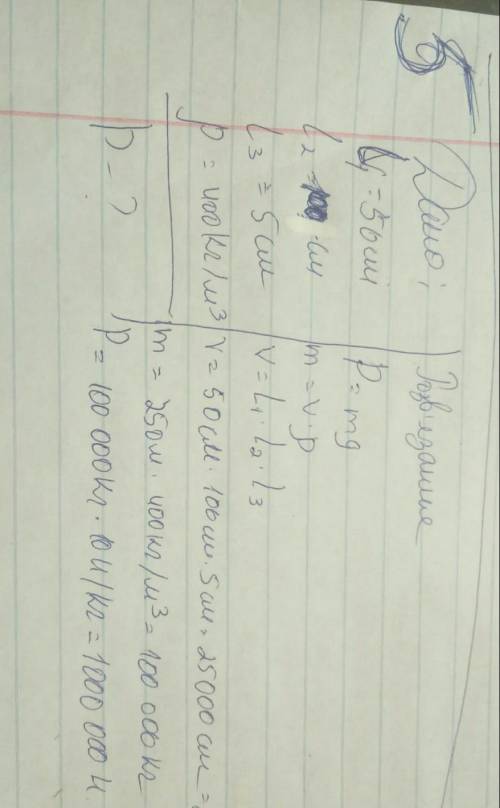 5
Дано:
l₁ = 50 см
l₂ = 100 см
l₃ = 5 см
p = 400 кг/м³
p - ?
P = mg
m = v · p
v = l₁ · l₂ · l₃
v = 50 см · 100 см · 5 см = 25000 см =
m = 250 м · 400 кг/м³ = 100 000 кг
P = 100 000 кг · 10 н/кг = 1000 000 н.